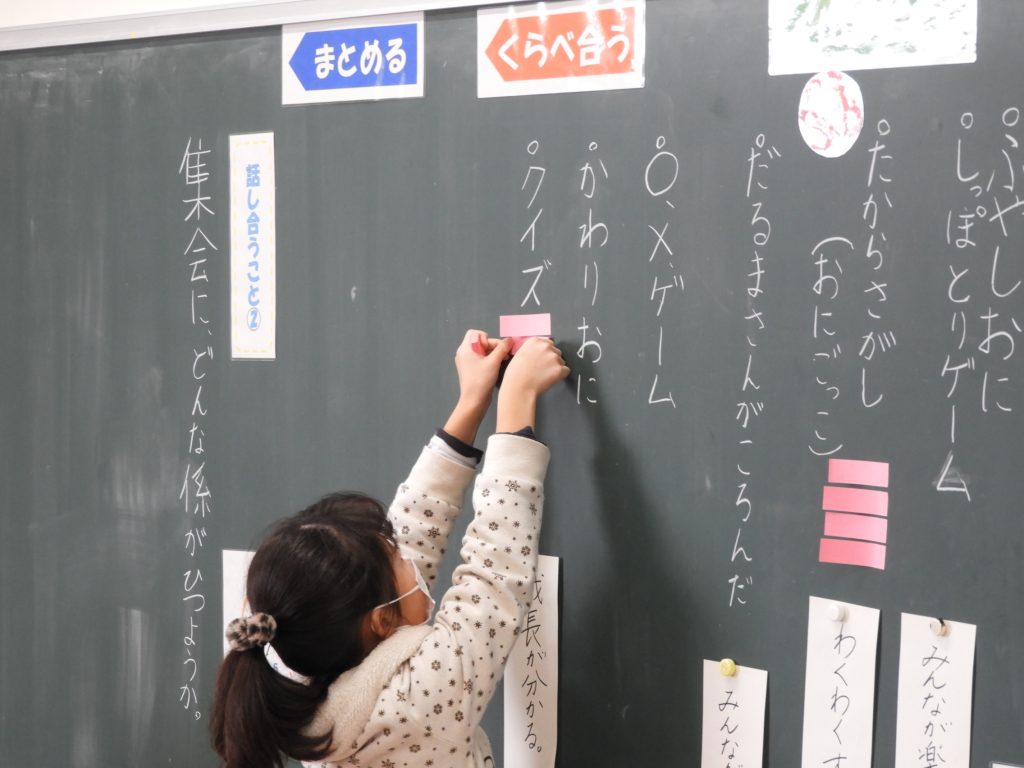 くらべ合う
まとめる
ふやしおに
しっぽとりゲーム
たからさがし
(おにごっこ)
だるまさんがころんだ
○、×ゲーム
かわりおに
クイズ
話し合うこと②
集会に、どんな係がひつようか。
みんなが楽
わくわくす
みんな
長が分かる。